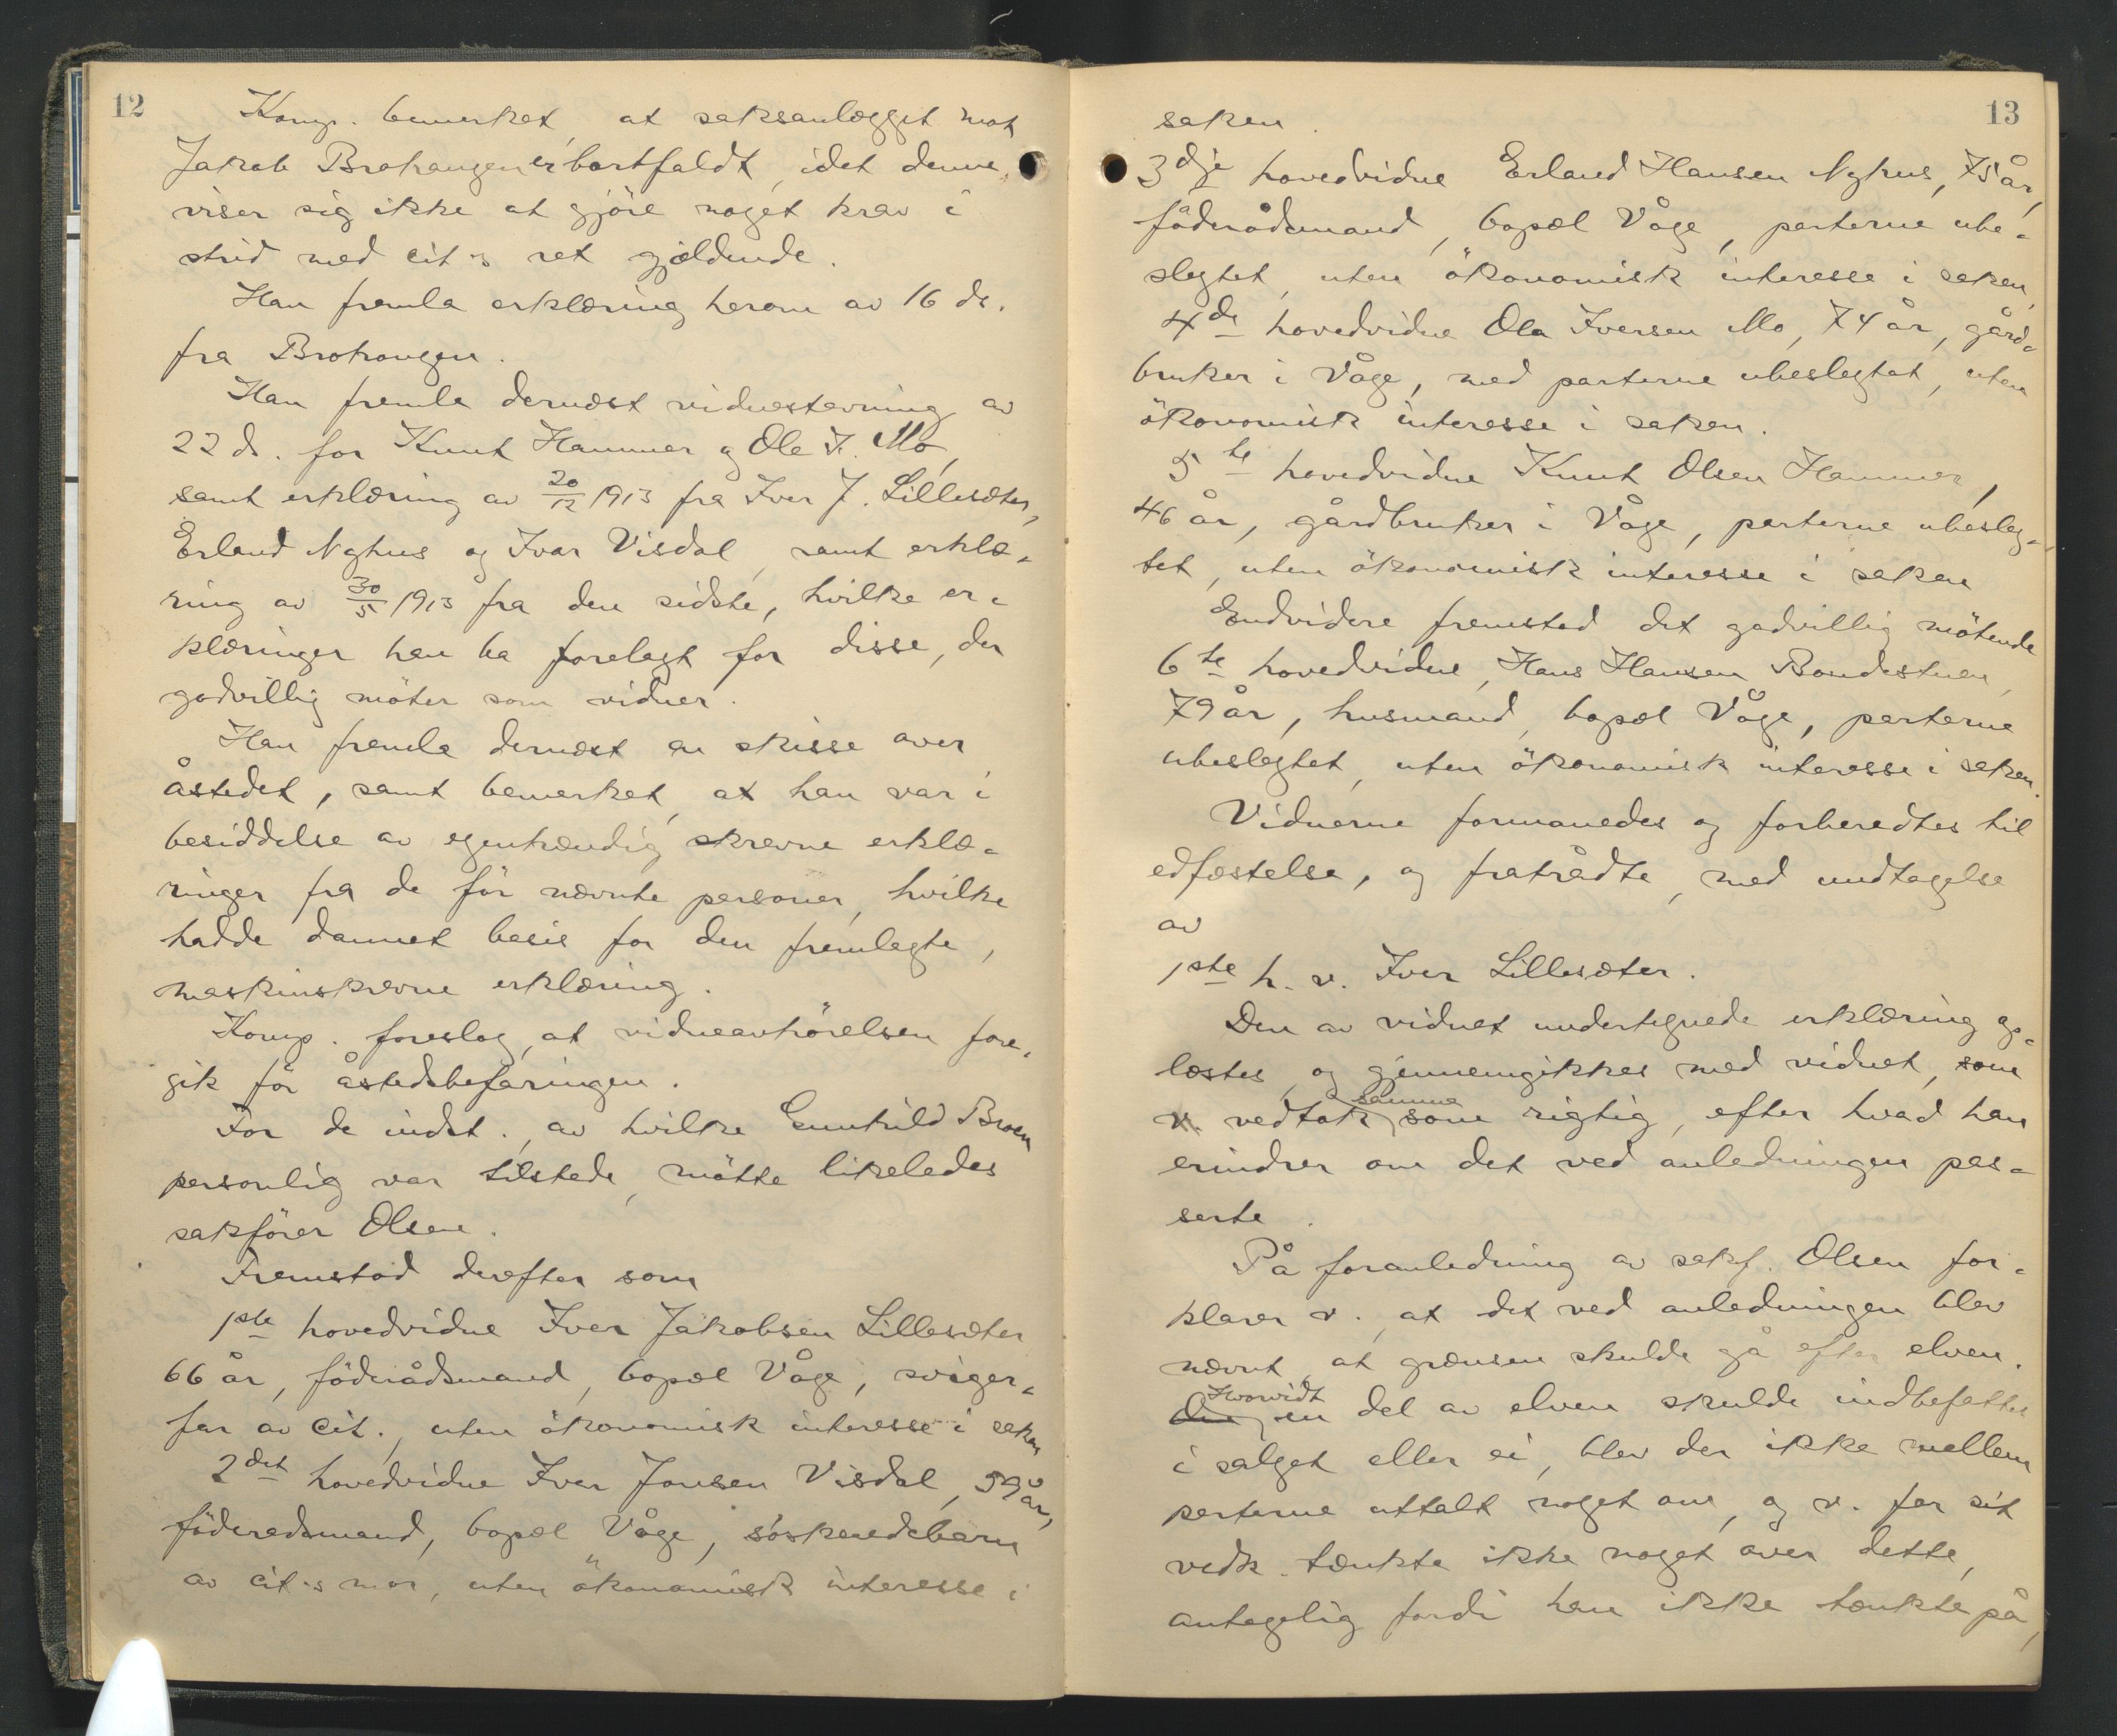 12
Komp. bemerket, at saksanlægget mot
Jakob Brohaugen er bortfaldt, idet denne
viser sig ikke at gjöre noget krav i
strid med cit.s ret gjældende.
Han fremla erklæring herom av 16 ds.
fra Brohaugen.
Han fremla dernæst vidnestevning av
22 ds. for Knut Hammer og Ole I. Mo,
samt erklæring av 20/12 1913 fra Iver J. Lillesæter,
Erland Nyhus og Ivar Visdal, samt erklæ-
ring av 30/5 1913 fra den sidste, hvilke er-
klæringer han ba forelagt for disse, der
godvillig möter som vidner.
Han fremla dernæst en skisse over
åstedet, samt bemerket, at han var i
besiddelse av egenhændig skrevne erklæ-
ringer fra de för nævnte personer, hvilke
hadde dannet basis for den fremlagte,
maskinskrevne erklæring.
Komp. foreslog, at vidneavhörelsen fore-
gik för åstedsbefaringen.
For de indst., av hvilke Gunhild Broen
personlig var tilstede, mötte likeledes
sakförer Olsen.
Fremstod derefter som
1ste hovedvidne Iver Jakobsen Lillesæter
66 år, föderådsmand, bopæl Våge, sviger-
far av cit., uten ökonomisk interesse i saken
2det hovedvidne Iver Jonsen Visdal, 59 år,
föderadsmand, bopæl Våge, söskendebarn
av cit.s mor, uten ökonomisk interesse i
13
saken.
3dje hovedvidne Erland Hansen Nyhus, 75 år,
föderådsmand, bopæl Våge, parterne ube-
slegtet, uten ökonomisk interesse i saken,
4de hovedvidne Ola Iversen Mo, 74 år, gård-
bruker i Våge, med parterne ubeslegtet, uten
ökonomisk interesse i saken.
5te hovedvidne Knut Olsen Hammer,
46 år, gårdbruker i Våge, parterne ubesleg-
tet, uten ökonomisk interesse i saken
Endvidere fremstod det godvillig mötende
6te hovedvidne, Hans Hansen Bondestuen,
79 år, husmand, bopæl Våge, parterne
ubeslegtet, uten ökonomisk interesse i saken.
Vidnerne formanedes og forberedtes til
edfæstelse, og fratrådte, med undtagelse
av
1ste h. v. Iver Lillesæter.
Den av vidnet undertegnede erklæring op-
læstes og gjennemgikkes med vidnet, som
v. vedtok samme som rigtig, efter hvad han
erindrer om det ved anledningen pas-
serte.
På foranledning av sakf. Olsen for-
klarer v., at det ved anledningen blev
nævnt, at grænsen skulde gå efter elven.
Hvorvidt en del av elven skulde indbefattes
i salget eller ei, blev der ikke mellem
parterne uttalt noget om, og v. for sit
vedk. tænkte ikke noget over dette,
antagelig fordi han ikke tænkte på,